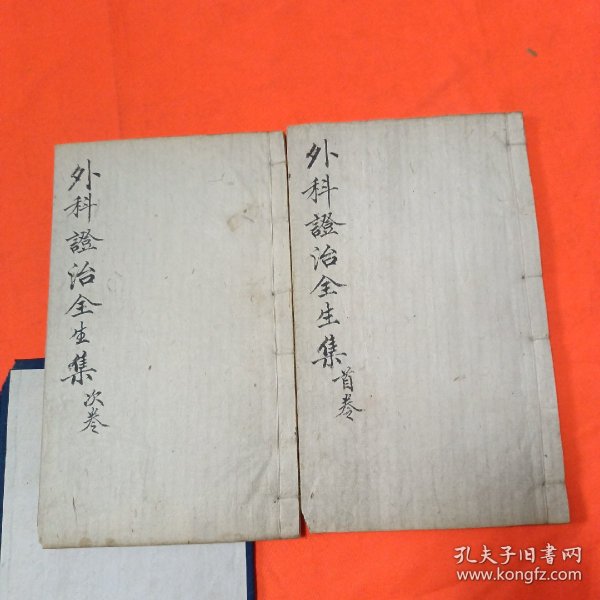 外科證治全生集首卷
外科證治全生集次卷
孔夫子旧书网
www.kongfz.com